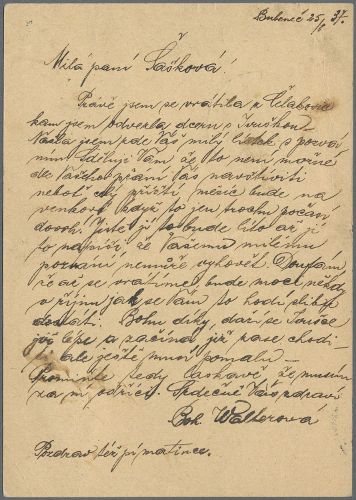 Bubeneč 25/8 37.
Milá paní Šašková!
Právě jsem se vrátila z Čelákovic
kam jsem odvezla dceru s Iruškou
Našla jsem zde Váš milý lístek s pozvá
ním. Sděluji Vám že to není možné
dle Vašeho přání Vás navštíviti
neboť celý příští měsíc bude na
venkově když to jen trochu počasí
dovolí. Jistě jí to bude líto až jí
to napíši, že Vašemu milému
pozvání nemůže vyhovět. Doufám,
že až se vrátíme, bude moci někdy
v říjnu jak se Vám to hodí slibu
dostáti. Bohu díky, daří se Irušce
již lépe a začíná již zase chodi
ti ale ještě musí pomalu
Promiňte tedy laskavě že musím
za ni odříci. Srdečně Vás zdraví
Boh. Walterová
Pozdrav též pí matince.